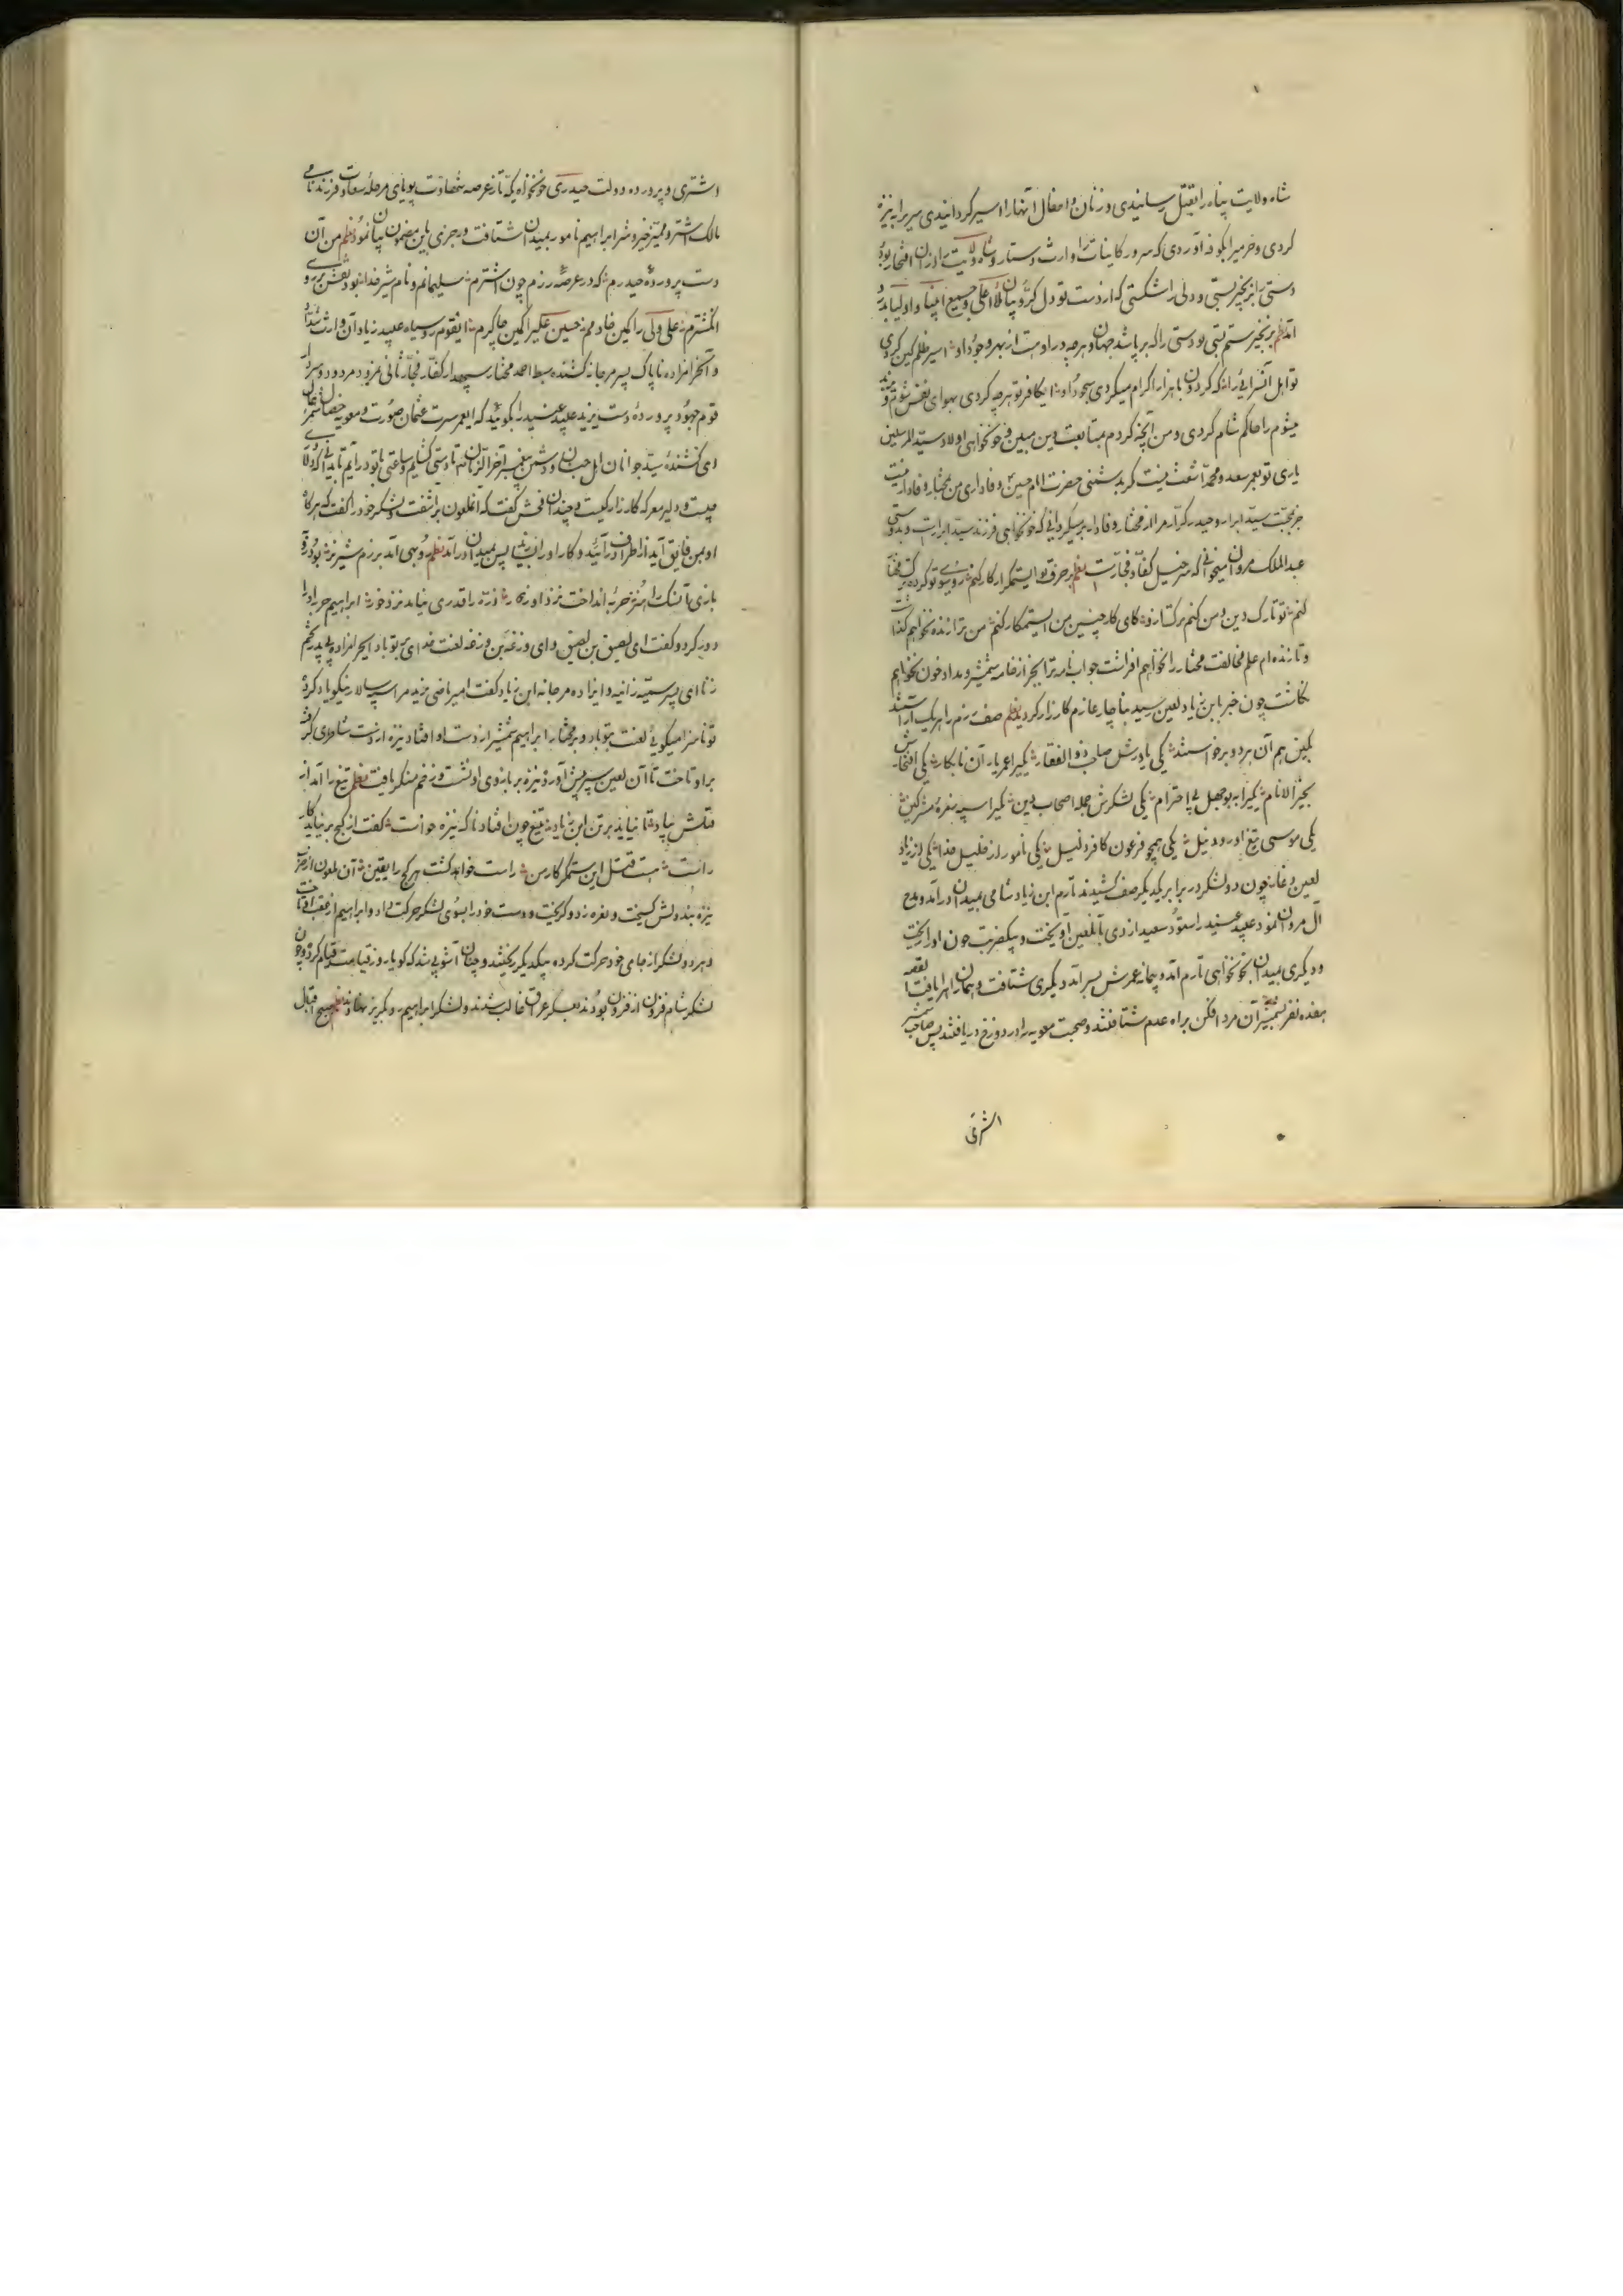 شاه ولایت پناه را بقتل رسانیدی و زنان و اطفال آنها را اسیر گردانیدی سر برابه نیزه
کردی و خرمیرا بکوفه آوردی که سرور کاینات را وارث و ستار و شاه ولایت را از آن افتخار بود
دستی را بزنجیر بستی و دلی را شکستی که از دست تو دل کروبیان ملأ اعلی و جمیع انبیا و اولیا بدرد
آمد نظم بزنجیر ستم بستی تو دستی را که بر پا شد جهان و هرچه در او هست از بهر وجود او اسیر ظلم کین کردی
تو اهل آنسرائی را که گردون با هزار اکرام میکردی سجود او ایکافر تو هرچه کردی بهوای نفس شوم
میشوم را حاکم شام کردی و من آنچه کردم بمتابعت دین مبین و خونخواهی اولاد سید المرسلین
یاری تو بعمر سعد و محمد اشعث نیست کر بدشمنی حضرت امام حسین و وفاداری من بمختار وفادار نیست
جز بمحبت سید ابرار و حیدر کرار مرا از مختار وفادار بر میگردانی که خونخواهی فرزند سید ابرارست و بدوستی
عبدالملک مروان میخوانی که سر خیل کفار و فجارست نظم بحرف تو ایستمکر ار کار کنم روی بسوی تو کرده ترک مختار
کنم تو تارک دین و من کنم ترک تو کای کار چنین من ایستمکار کنم من ترا زنده نخواهم گذاشت
و تا زنده ام علم مخالفت مختار را نخواهم افراشت جواب نامه ترا بجز از خامه شمشیر و مداد خون نخواهم
نگاشت چون خبر بابن زیاد لعین رسید بناچار عازم کارزار گردید نظم صف رزم را هر یک آراستند
بکین هم آن هر دو برخواستند یکی یاورش صاحب ذوالفقار یکیرا عمر یار آن نابکار یکی افتخارش
بخیر الانام یکیرا به بوجهل بی احترام یکی لشکرش جمله اصحاب دین یکیرا سپه سفره مشرکین
یکی موسی تیغ او رود نیل یکی همچو فرعون کافر ذلیل یکی نامور از خلیل خدا یکی از زیاد
لعین دغا چون دو لشکر در برابر یکدیگر صف کشیدند تارم ابن زیاد شامی بمیدان درآمد و مدح
آل مروان نمود عبید عنید را ستود سعید ازدی با آن لعین آویخت و بیکضربت خون او را ریخت
و دیگری بمیدان بخونخواهی تارم آمد و پیمانه عمرش بسر آمد دیگری شتافت و همان زهر را یافت القصه
هفده نفر بشمشیر آن مرد افکن براه عدم شتافتند و صحبت معویه را در دوزخ دریافتند پس صاحب شمشیر
اشتری
اشتری و پرورده دولت حیدری خونخواه یکه تاز عرصه شهادت پویای مرحله سعادت فرزند نامی
مالک اشتر و ممیز خیر و شر ابراهیم نامور بمیدان اشتافت و رجزی باین مضمون بیان نمود نظم من آن
دست پرورده حیدرم که در عرصه رزم چون اشترم سلیمانم و نام شیر خدا بود نقش بر روی
انگشترم علی ولی را کمین خادمم حسین علی را کمین چاکرم ایقوم رو سیاه عبید زیاد آن وارث شداد
و آنحرامزاده ناپاک پسر مرجانه کشنده سبط احمد مختار سپهدار کفار فجار ثانی نمرود مردود و سردار
قوم جهود پرورده دست یزید عبید عنید را بگوئید که ایعمر سیرت عثمان صورت و معویه خصال شمر فعال
ای کشنده سید جوانان اهل جنان و دشمن پیغمبر آخر الزمان بیا تا دستی گشایم و ساعتی با تو در آیم تا بدانی که دلاور
کیست و دلیر معرکه کارزار کیست و چندان فحش گفت که انملعون برآشفت و لشکر خود را گفت که هرگاه
او بمن فایق آید از اطراف درآئید و کار او را بسازید پس بمیدان درآمد نظم روبهی آمد برزم شیر نر بود در
بازی آنسک را هنر حربه انداخت نزد او نه ذره را قدری نباید نزد خور ابراهیم حربه او را
دور کرد و گفت ای لصیق بن لصیق و ای وزغه بن وزغه لعنت خدای بر تو باد ایحرامزاده بی پدر تخم
زنا ای پسر سمیه زانیه و ایزاده مرجانه ابن زیاد گفت امیر راضی یزید مرا سپه سالار نیکو یاد کرد
تو ناسزا میگویی لعنت بتو باد و بر مختار ابراهیم شمشیر از دست او افتاد نیزه از دست شاطری گرفت
بر او تاخت تا آن لعین سپر پیش آورد نیزه بر بازوی او نشست و زخم منکر یافت نظم تیغ را آمد از
قتلش بیاد تا نیاید بر تن ابن زیاد تیغ چون افتاد ناگه نیزه خواست گفت از کج بر نیاید کار
راست هست قتل این ستمگر کار من راست خواهد گشت هر کج را یقین آن ملعون از ضرب
نیزه بند دلش گسیخت و نعره زد و گریخت و دست خود را بسوی لشکر حرکت داد و ابراهیم از عقب او تاخت
و هر دو لشکر از جای خود حرکت کرده بیکدیگر ریختند و چنان آشوبی شد که گویا روز قیامت قیام کرد و چون
لشکر شام فزون از فزون بودند بعسکر عراق غالب شدند و لشکر ابراهیم رو بگریز نهادند نظم صبح اقبال